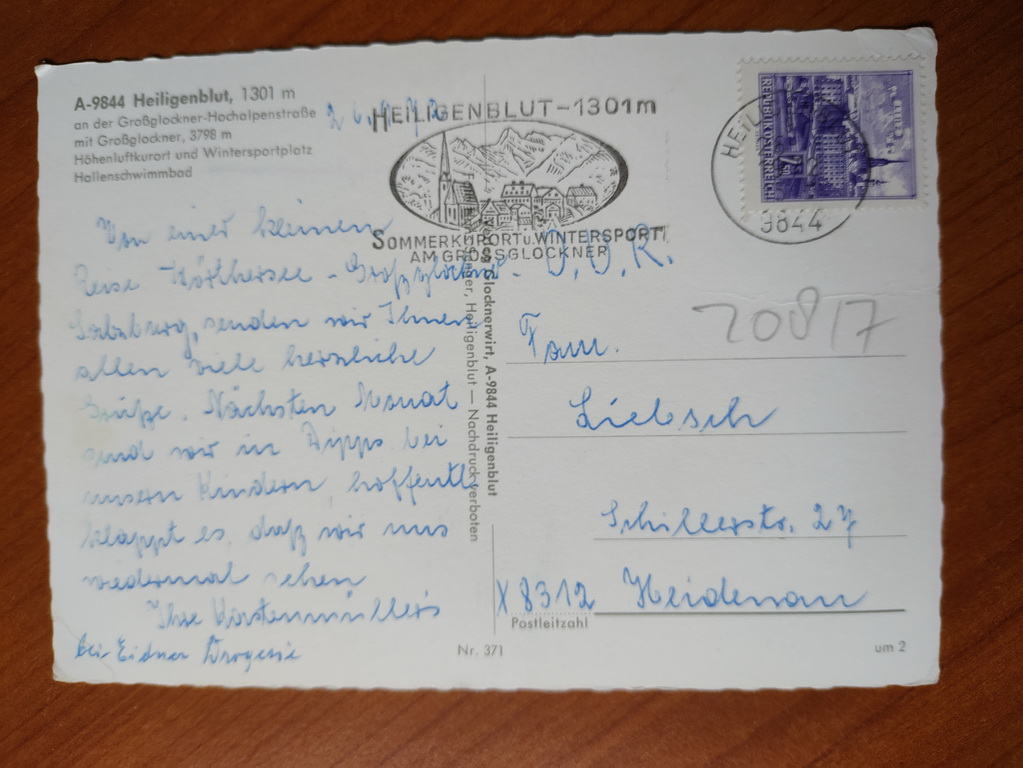 A-9844 Heiligenblut, 1301 m
an der Großglockner-Hochalpenstraße
mit Großglockner, 3798 m
Höhenluftkurort und Wintersportplatz
Hallenschwimmbad
HEILIGENBLUT-1301m
SOMMERKURORT u. WINTERSPORT
AM GROSSGLOCKNER
9844
REPUBLIK ÖSTERREICH
Von einer kleinen
Reise Wörthersee - Großglockner -
Salzburg, senden wir Ihnen
allen viele herzliche
Grüße. Nächsten Monat
sind wir in Dipps bei
unsern Kindern, hoffentl.
klappt es, daß wir uns
wiedermal sehen
Ihre Kürstenmüllers
bei Eidner Drogerie
Glocknerwirt, A-9844 Heiligenblut
Heiligenblut — Nachdruck verboten
D.D.R.
20817
Fam.
Liebsch
Schillerstr. 27
X 8312 Heidenau
Postleitzahl
Nr. 371
um 2